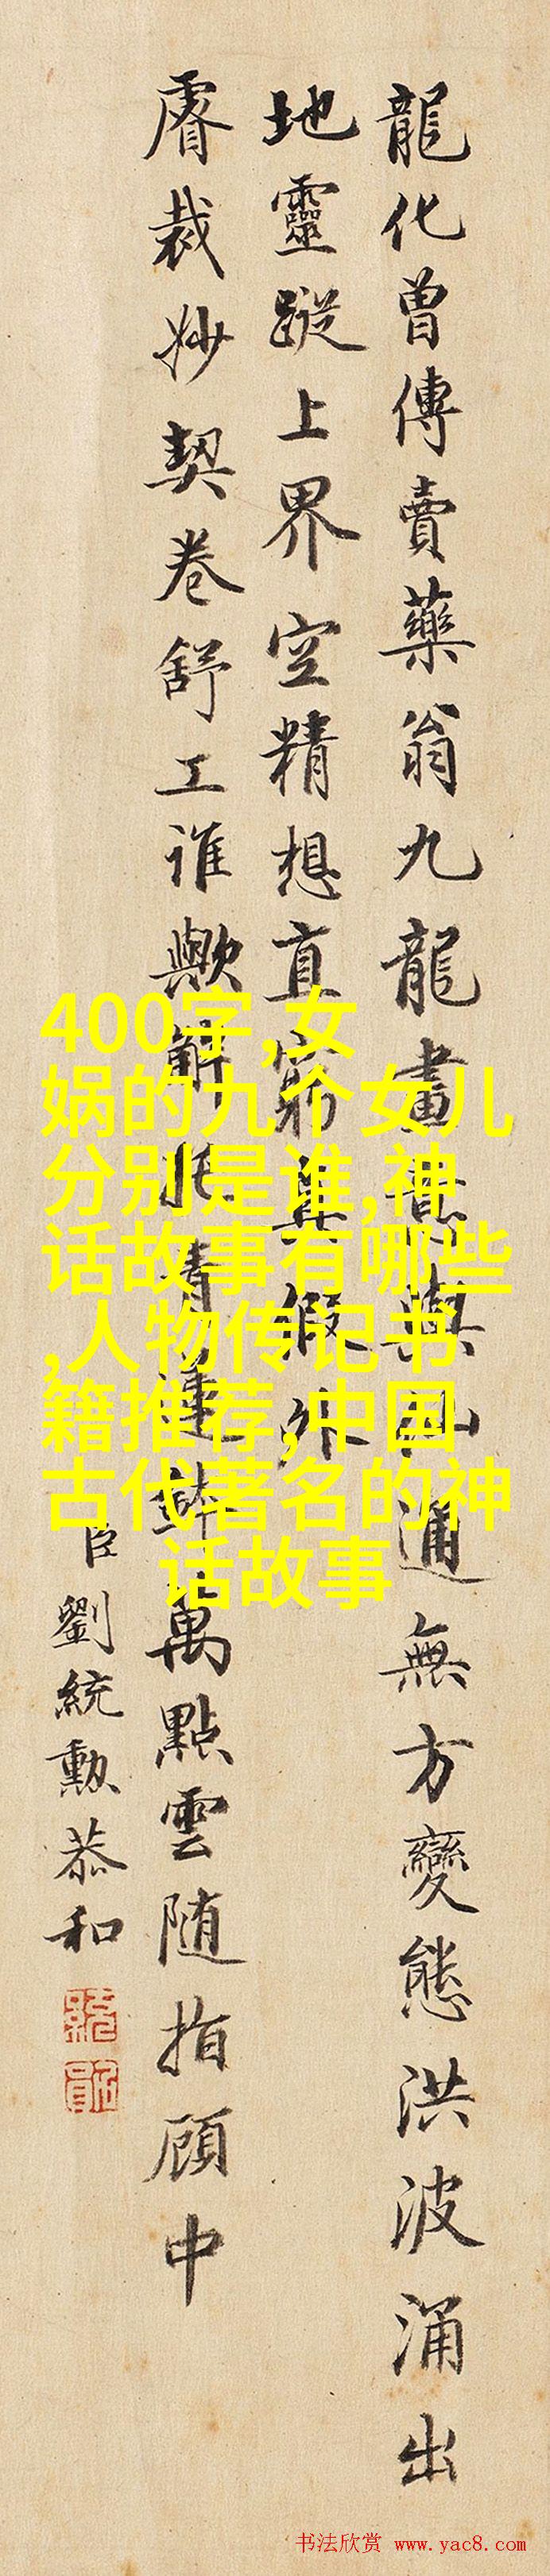 龍化曾傳賣藥翁九龍畫意與仙通無方變態洪波涌出
地靈蹤上界空精想直窮真假外
睿裁妙契卷舒工誰歟解作青蓮鉢萬點雲随指顧中
臣劉統勳恭和
400字,女
娲的九个女儿
分别是谁,神
话故事有哪些
,人物传记书
籍推荐,中国
古代著名的神
话故事
书法欣赏 www.yac8.com